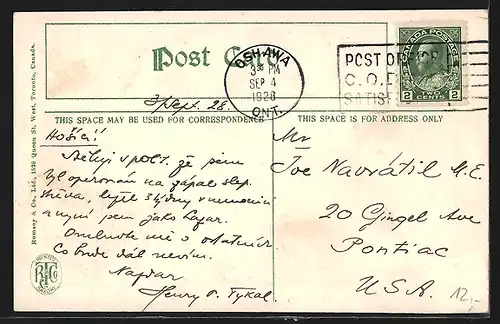 Post Card
OSHAWA
3 30 PM
SEP 4
1928
ONT.
POST OFFICE
C.O.D.
SATISF
CANADA POSTAGE
2 CENTS 2
3 Sept. 28.
THIS SPACE MAY BE USED FOR CORRESPONDENCE
THIS SPACE IS FOR ADDRESS ONLY
Hoši!
v post. že jsem
byl operován na zápal slep.
střeva, ležel 3 týdny v nemocnici
a nyní jsem jako
Omluvte mě o ostatních
Co bude dál nevím.
Nazdar
Henry
Mr
Joe Navrátil M.E.
20 Gingel Ave
Pontiac
U.S.A.
12,-
Rumsey & Co., Ltd., 1538 Queen St. West, Toronto, Canada.